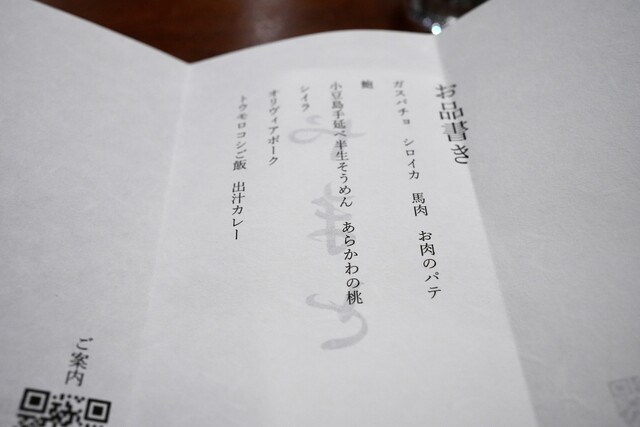 お品書き
ガスパチョ　シロイカ　馬肉　お肉のパテ
鮑
小豆島手延べ半生そうめん　あらかわの桃
シイラ
オリヴィアポーク
トウモロコシご飯　出汁カレー
ご案内